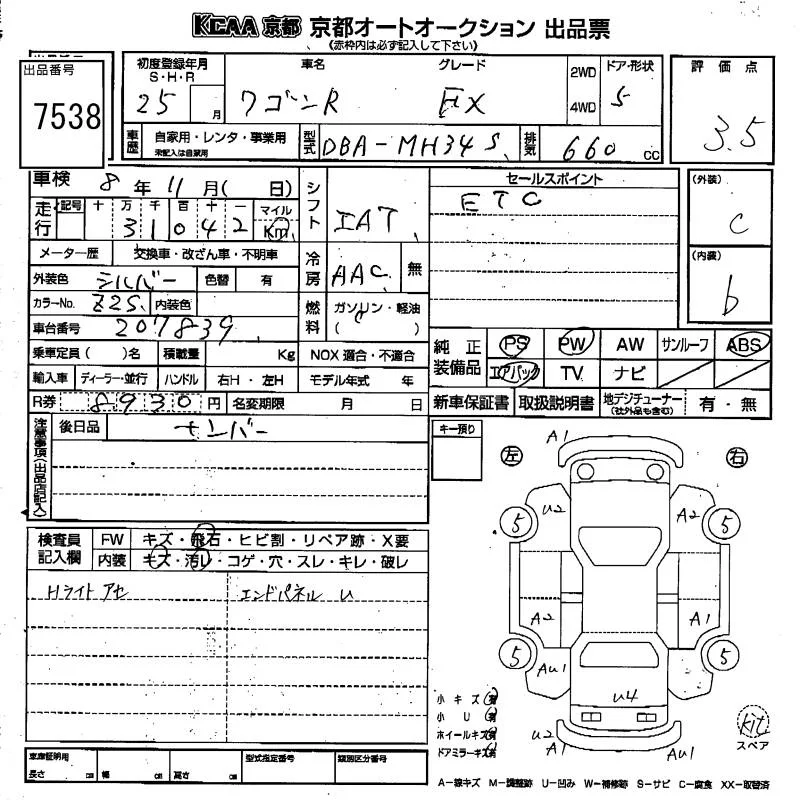 KCAA 京都 京都オートオークション 出品票
(赤枠内は必ず記入して下さい)
出品番号
7538
初度登録年月
S・H・R
25 月
車名
ワゴンR
グレード
FX
2WD
4WD
ドア・形状
5
評価点
3.5
車歴
自家用・レンタ・事業用
未記入は自家用
型式
DBA-MH34S
排気
660 cc
車検 8年 11月( 日)
走行
記号 十 万 千 百 十 一 マイル
3 1 0 4 2 Km
シフト
IAT
セールスポイント
ETC
(外装)
C
(内装)
b
メーター歴 交換車・改ざん車・不明車
冷房
AAC 無
外装色 シルバー 色替 有
カラーNo. Z2S 内装色
燃料
ガソリン・軽油
( )
車台番号 207839
乗車定員( )名 積載量 Kg NOX適合・不適合
輸入車 ディーラー・並行 ハンドル 右H・左H モデル年式 年
R券 8930円 名変期限 月 日
純正装備品
PS PW AW サンルーフ ABS
エアバック TV ナビ
新車保証書 取扱説明書 地デジチューナー(社外品も含む) 有・無
注意事項(出品店記入)
後日品 ナンバー
キー預り
左 右
A1
U2 A2
5 5
A2 A1
5 5
AU1
U4
U2
A1
AU1
検査員記入欄
FW キズ・飛石・ヒビ割・リペア跡・X要
内装 キズ・汚レ・コゲ・穴・スレ・キレ・破レ
Hライトアセ エンドパネル U
小キズ(有)
小U(有)
ホイールキズ(有)
ドアミラーキズ(有)
kit
スペア
車庫証明用
長さ cm 幅 cm 高さ cm
型式指定番号 類別区分番号
A−線キズ M−調整跡 U−凹み W−補修跡 S−サビ C−腐食 XX−取替済